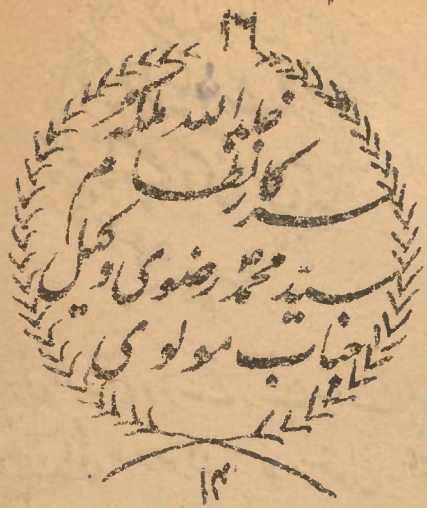 ٢٦
خلد الله ملکه
سرکار نظام
سید محمد رضوی وکیل
جناب مولوی
١٣